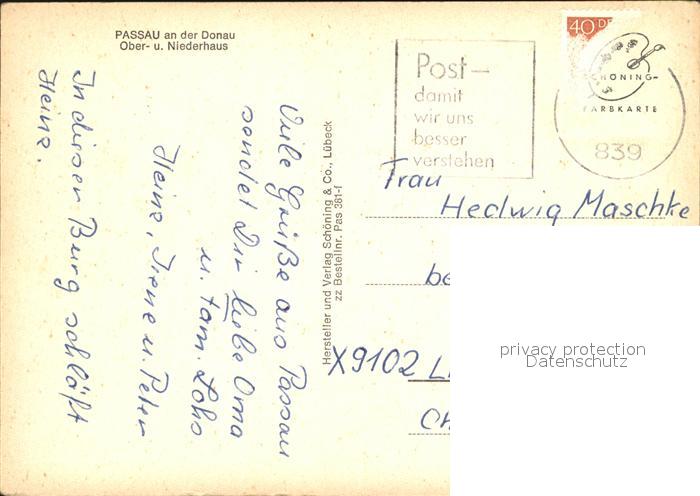 PASSAU an der Donau
Ober- u. Niederhaus
Viele Grüße aus Passau
sendet Dir liebe Oma
u. fam. Lohs
Heinz, Irene u. Peter
In dieser Burg schläft
Heinz.
Hersteller und Verlag Schöning & Co., Lübeck
zz Bestellnr. Pas 381-f
Post—
damit
wir uns
besser
verstehen
40
SCHÖNING-
FARBKARTE
839
Frau
Hedwig Maschke
be
X9102 L
CH
privacy protection
Datenschutz